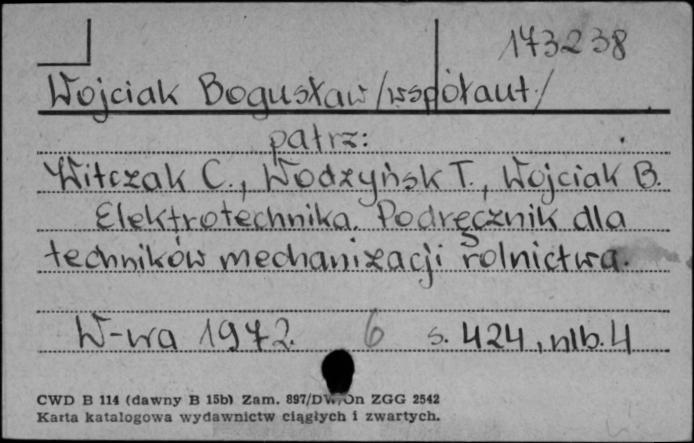 173238
Wojciak Bogusław /współaut./
patrz:
Witczak C., Wodzyńsk T., Wojciak B.
Elektrotechnika. Podręcznik dla
techników mechanizacji rolnictwa.
W-wa 1972. 6 s. 424, nlb. 4
CWD B 114 (dawny B 15b) Zam. 897/DW/On ZGG 2542
Karta katalogowa wydawnictw ciągłych i zwartych.